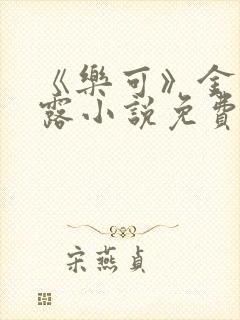 《樂可》金
露小說免費
宋燕貞